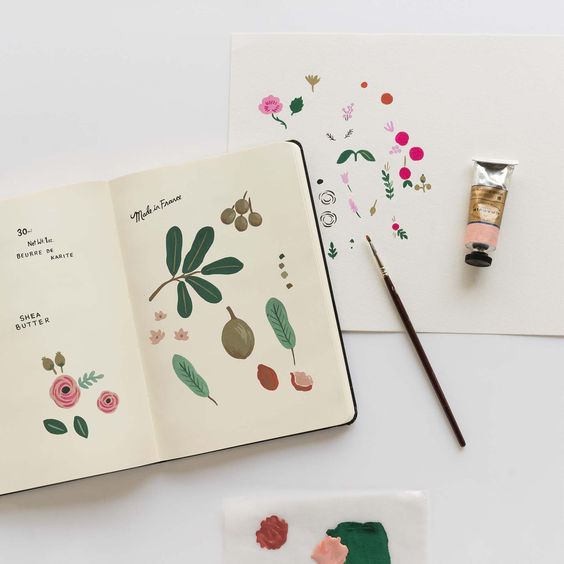 30ml
Net Wt 1oz.
BEURRE DE KARITE
SHEA
BUTTER
Made in France